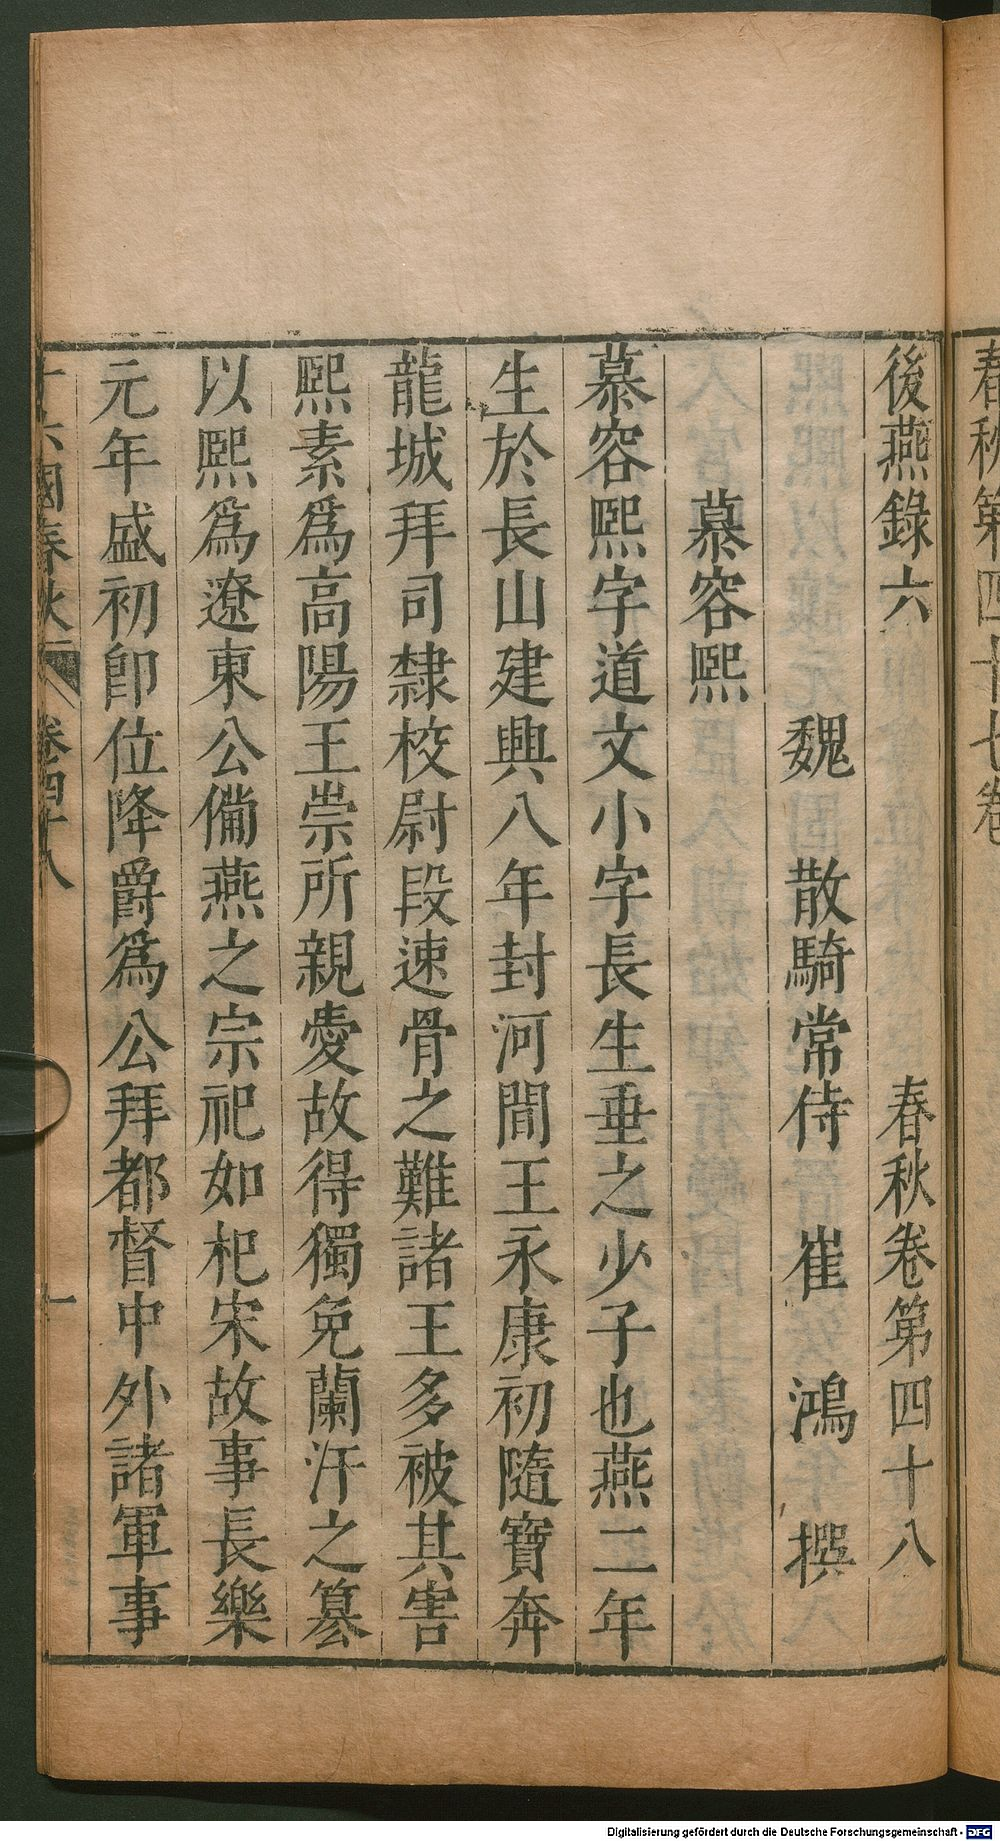 春秋第四十七卷
後燕錄六　春秋卷第四十八
魏　散騎常侍　崔　鴻　撰
慕容熙
慕容熙字道文小字長生垂之少子也燕二年
生於長山建興八年封河間王永康初隨寶奔
龍城拜司隸校尉段速骨之難諸王多被其害
熙素爲高陽王崇所親愛故得獨免蘭汗之篡
以熙爲遼東公備燕之宗祀如杞宋故事長樂
元年盛初卽位降爵爲公拜都督中外諸軍事
十六國春秋　卷四十八　一
Digitalisierung gefördert durch die Deutsche Forschungsgemeinschaft - DFG